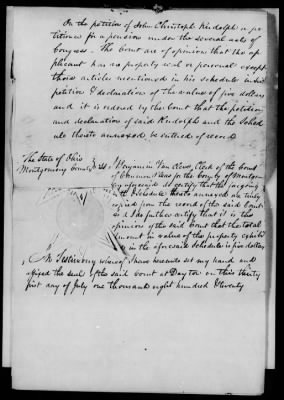 On the petition of John Christoph Rudolph a pe-
titioner for a pension under the several acts of
Congress. The Court are of opinion that the ap-
plicant has no property real or personal except
those articles mentioned in his schedule in his
petition & declaration of the value of five dollars
and it is ordered by the Court that the petition
and declaration of said Rudolph and the Sched
ule thereto annexed be entered of record
The State of Ohio
Montgomery County } ss I Benjamin Van Cleve, Clerk of the Court
of Common Pleas for the County of Montgom
ery aforesaid do certify that the foregoing
with Schedule thereto annexed are truly
copied from the record of the said Court
I do further certify that it is the
opinion of the said Court that the total
amount in value of the property exhibi
in the aforesaid Schedule is five dollars
In Testimony whereof I have hereunto set my hand and
affixed the seal of the said Court at Dayton on this thirty
first day of July one thousand eight hundred & twenty